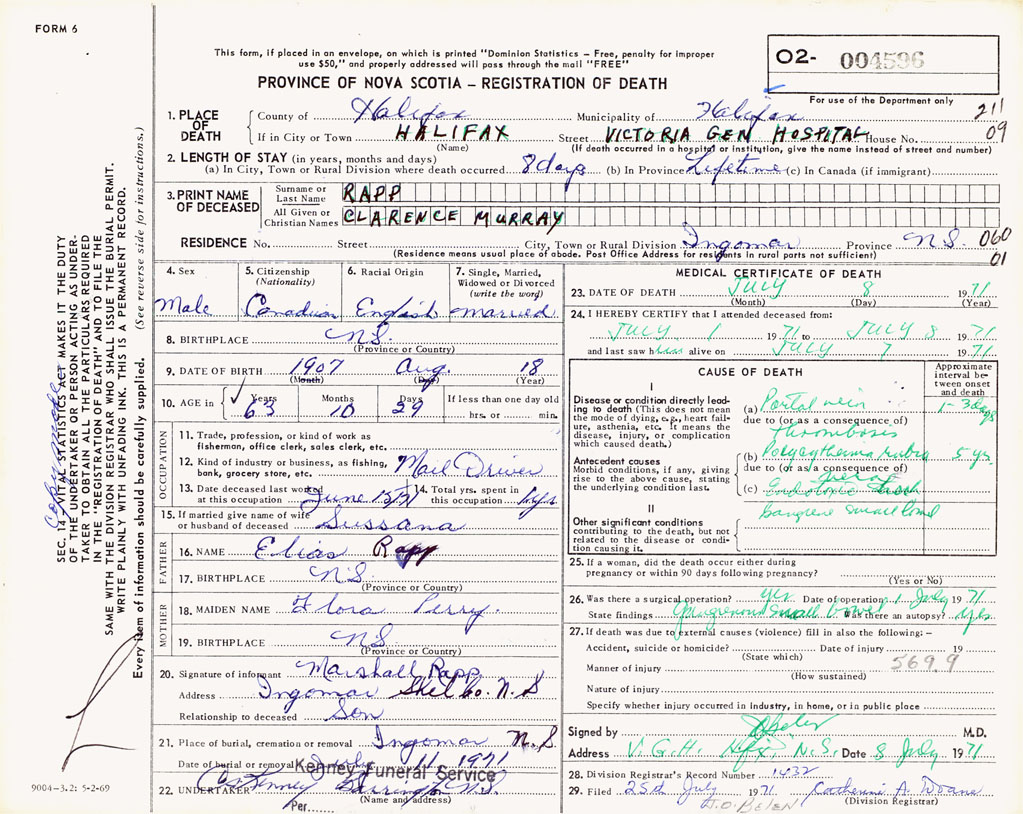 FORM 6
This form, if placed in an envelope, on which is printed "Dominion Statistics – Free, penalty for improper
use $50," and properly addressed will pass through the mail "FREE"
PROVINCE OF NOVA SCOTIA – REGISTRATION OF DEATH
O2- 004596
For use of the Department only
211
09
1. PLACE OF DEATH
County of Halifax Municipality of Halifax
If in City or Town HALIFAX Street VICTORIA GEN HOSPITAL House No.
(Name) (If death occurred in a hospital or institution, give the name instead of street and number)
2. LENGTH OF STAY (in years, months and days)
(a) In City, Town or Rural Division where death occurred 8 days (b) In Province Lifetime (c) In Canada (if immigrant)
3. PRINT NAME OF DECEASED
Surname or Last Name RAPP
All Given or Christian Names CLARENCE MURRAY
RESIDENCE No. Street City, Town or Rural Division Ingomar Province N.S. 060
01
(Residence means usual place of abode. Post Office Address for residents in rural parts not sufficient)
4. Sex 5. Citizenship (Nationality) 6. Racial Origin 7. Single, Married, Widowed or Divorced (write the word)
Male Canadian English married
8. BIRTHPLACE N.S.
(Province or Country)
9. DATE OF BIRTH 1907 Aug. 18
(Month) (Day) (Year)
10. AGE in Years Months Days If less than one day old
63 10 29 hrs. or min.
OCCUPATION
11. Trade, profession, or kind of work as
fisherman, office clerk, sales clerk, etc.
12. Kind of industry or business, as fishing,
bank, grocery store, etc. Mail Driver
13. Date deceased last worked at this occupation June 15/71 14. Total yrs. spent in this occupation yrs
15. If married give name of wife
or husband of deceased Sussana
FATHER
16. NAME Elias Rapp
17. BIRTHPLACE N.S.
(Province or Country)
MOTHER
18. MAIDEN NAME Flora Perry
19. BIRTHPLACE N.S.
(Province or Country)
20. Signature of informant Marshall Rapp
Address Ingomar Shel Co. N.S
Relationship to deceased Son
21. Place of burial, cremation or removal Ingomar N.S.
Date of burial or removal July 11 1971
Kenney Funeral Service
22. UNDERTAKER Kenney Barrington N.S.
(Name and address)
Per
MEDICAL CERTIFICATE OF DEATH
23. DATE OF DEATH JULY 8 1971
(Month) (Day) (Year)
24. I HEREBY CERTIFY that I attended deceased from:
JULY 1 1971 to JULY 8 1971
and last saw h alive on JULY 7 1971
CAUSE OF DEATH
Approximate interval between onset and death
I
Disease or condition directly leading to death (This does not mean the mode of dying, e.g., heart failure, asthenia, etc. It means the disease, injury, or complication which caused death.)
(a) Portal vein 1-3 days
due to (or as a consequence of)
thrombosis
Antecedent causes
Morbid conditions, if any, giving rise to the above cause, stating the underlying condition last.
(b) Polycythemia rubra 5 yr.
due to (or as a consequence of)
vera
(c)
II
Other significant conditions
contributing to the death, but not related to the disease or condition causing it.
Gangrene small bowel
25. If a woman, did the death occur either during
pregnancy or within 90 days following pregnancy?
(Yes or No)
26. Was there a surgical operation? yes Date of operation 1 July 1971
State findings Gangrenous Small bowel Was there an autopsy? yes
27. If death was due to external causes (violence) fill in also the following: –
Accident, suicide or homicide? Date of injury 19
(State which) 5699
Manner of injury
(How sustained)
Nature of injury
Specify whether injury occurred in industry, in home, or in public place
Signed by M.D.
Address V.G.H. Hfx. N.S. Date 8 July 1971
28. Division Registrar's Record Number 1432
29. Filed 25th July 1971 Catherine A. Doane
(Division Registrar)
J.O. BELEN
SEC. 14 VITAL STATISTICS ACT MAKES IT THE DUTY
OF THE UNDERTAKER OR PERSON ACTING AS UNDER-
TAKER TO OBTAIN ALL THE PARTICULARS REQUIRED
IN THE "REGISTRATION OF DEATH" AND TO FILE THE
SAME WITH THE DIVISION REGISTRAR WHO SHALL ISSUE THE BURIAL PERMIT.
WRITE PLAINLY WITH UNFADING INK. THIS IS A PERMANENT RECORD.
Every item of information should be carefully supplied. (See reverse side for instructions.)
9004-3.2: 5-2-69